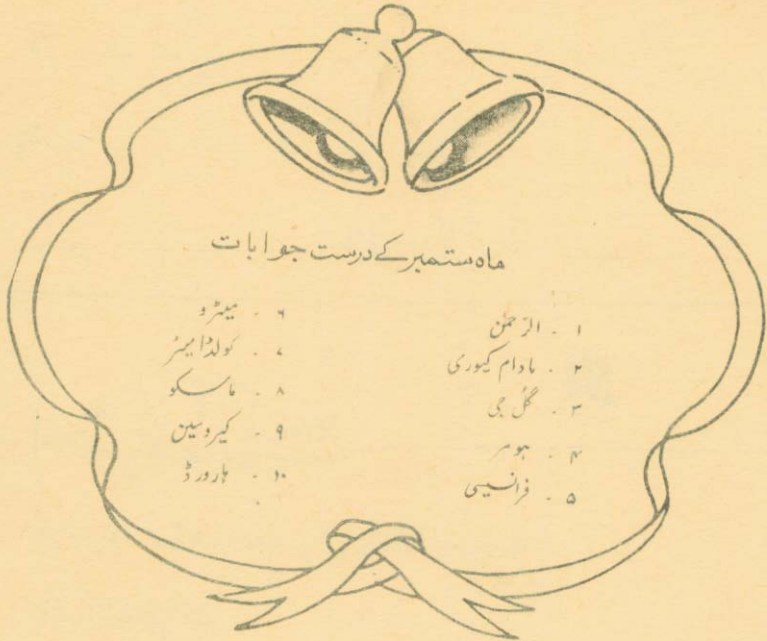 ماہ ستمبر کے درست جوابات
۱ - الرّحمٰن
۲ - مادام کیوری
۳ - گُل جی
۴ - ہومر
۵ - فرانسیسی
۶ - میٹرو
۷ - گولڈا میئر
۸ - ماسکو
۹ - کیروسین
۱۰ - ہارورڈ